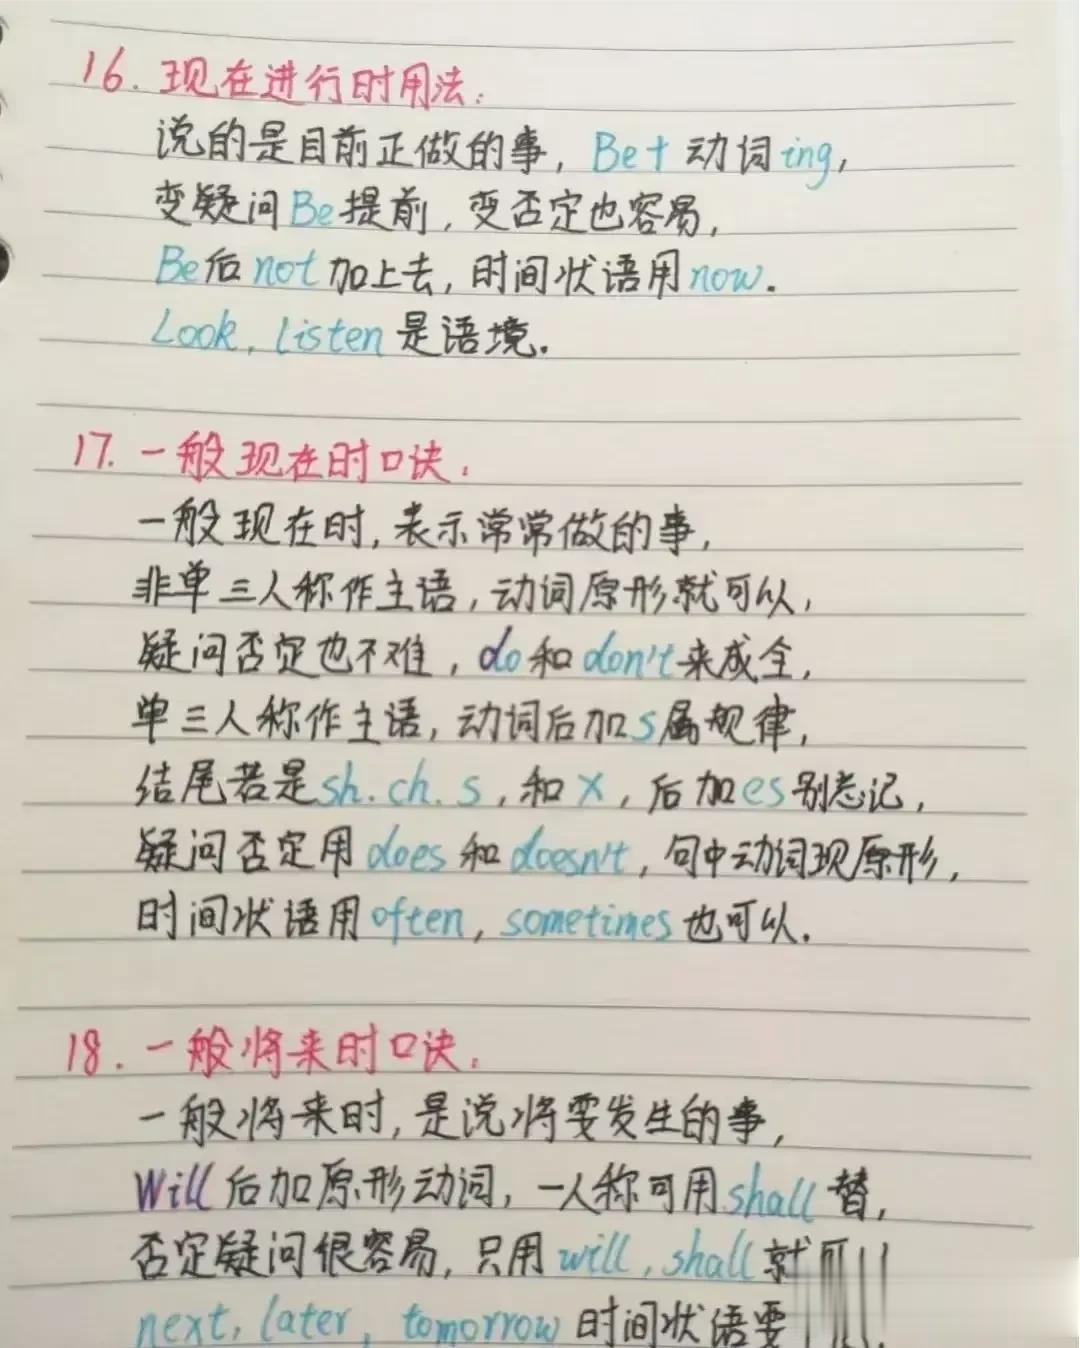 16. 现在进行时用法:
说的是目前正做的事, Be+ 动词ing,
变疑问Be提前, 变否定也容易,
Be后not加上去, 时间状语用now.
Look, Listen是语境.
17. 一般现在时口诀:
一般现在时, 表示常常做的事,
非单三人称作主语, 动词原形就可以,
疑问否定也不难, do和don't来成全,
单三人称作主语, 动词后加s属规律,
结尾若是sh. ch. s, 和x, 后加es别忘记,
疑问否定用does和doesn't, 句中动词现原形,
时间状语用often, sometimes也可以.
18. 一般将来时口诀:
一般将来时, 是说将要发生的事,
Will后加原形动词, 一人称可用shall替,
否定疑问很容易, 只用will, shall就
next, later, tomorrow时间状语要